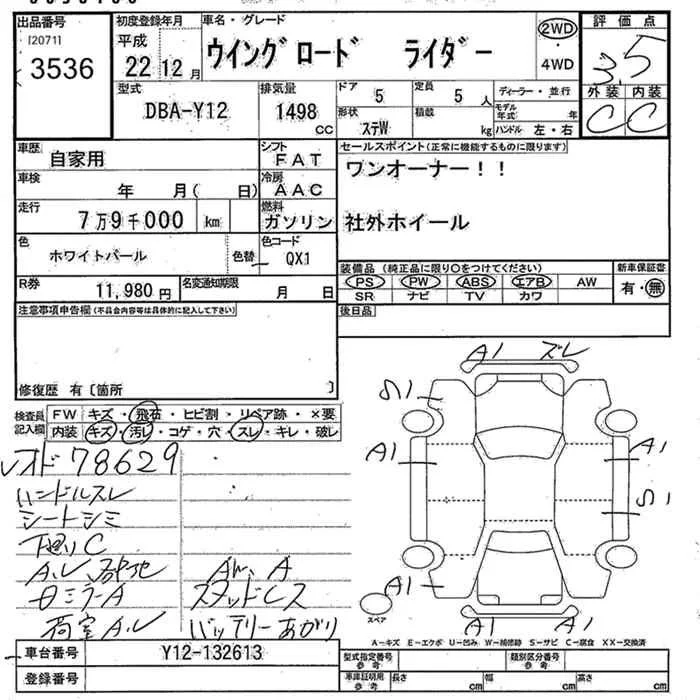 出品番号
I20711
3536
初度登録年月
平成
22 12 月
車名・グレード
ウイングロード ライダー
2WD
・
4WD
評価点
3.5
外装 内装
C C
型式
DBA-Y12
排気量
1498
CC
ドア
5
定員
5 人
形状
ステW
積載
kg
ディーラー・並行
モデル年式 年
ハンドル 左・右
車歴
自家用
シフト
FAT
車検
年 月( 日)
冷房
AAC
走行
7万9千000 km
燃料
ガソリン
色
ホワイトパール
色替
色コード
QX1
R券
11,980 円
名変通知期限
月 日
セールスポイント(正常に機能するものに限ります)
ワンオーナー!!
社外ホイール
装備品(純正品に限り○をつけてください)
PS PW ABS エアB AW
SR ナビ TV カワ
新車保証書
有・無
後日品
注意事項申告欄(不具合内容等は具体的に記入して下さい)
修復歴 有〔箇所 〕
検査員記入欄
FW キズ・飛石・ヒビ割・リペア跡・×要
内装 キズ・汚レ・コゲ・穴・スレ・キレ・破レ
78629
ハンドルスレ
シートシミ
下廻りC
A.U
ミラーA
荷室 A.U
A
スタッドレス
バッテリーあがり
A1 ズレ
A1
A1
A1
A1
A1
スペア
A-キズ E-エクボ U-凹み W-補修跡 S-サビ C-腐食 XX-交換済
車台番号
Y12-132613
登録番号
型式指定番号
参考
類別区分番号
参考
車庫証明用
参考
長さ cm
幅 cm
高さ cm